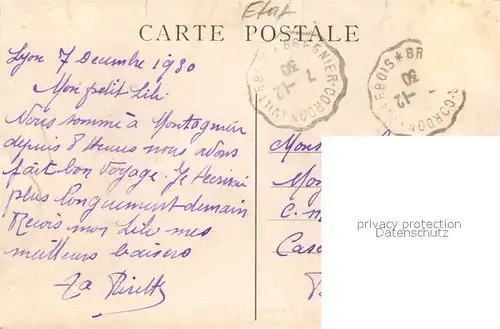 Etat
CARTE POSTALE
Lyon 7 Decembre 1930
Mon petit Lili
Nous somme à Montagnieu
depuis 8 Heures nous avons
fait bon voyage. Je t'ecrirai
plus longuement demain
Recois mon Lili mes
meilleurs baisers
Ta
BREGNIER-CORDON
7 -12
30
BR
-12
30
Mons
C.
privacy protection
Datenschutz